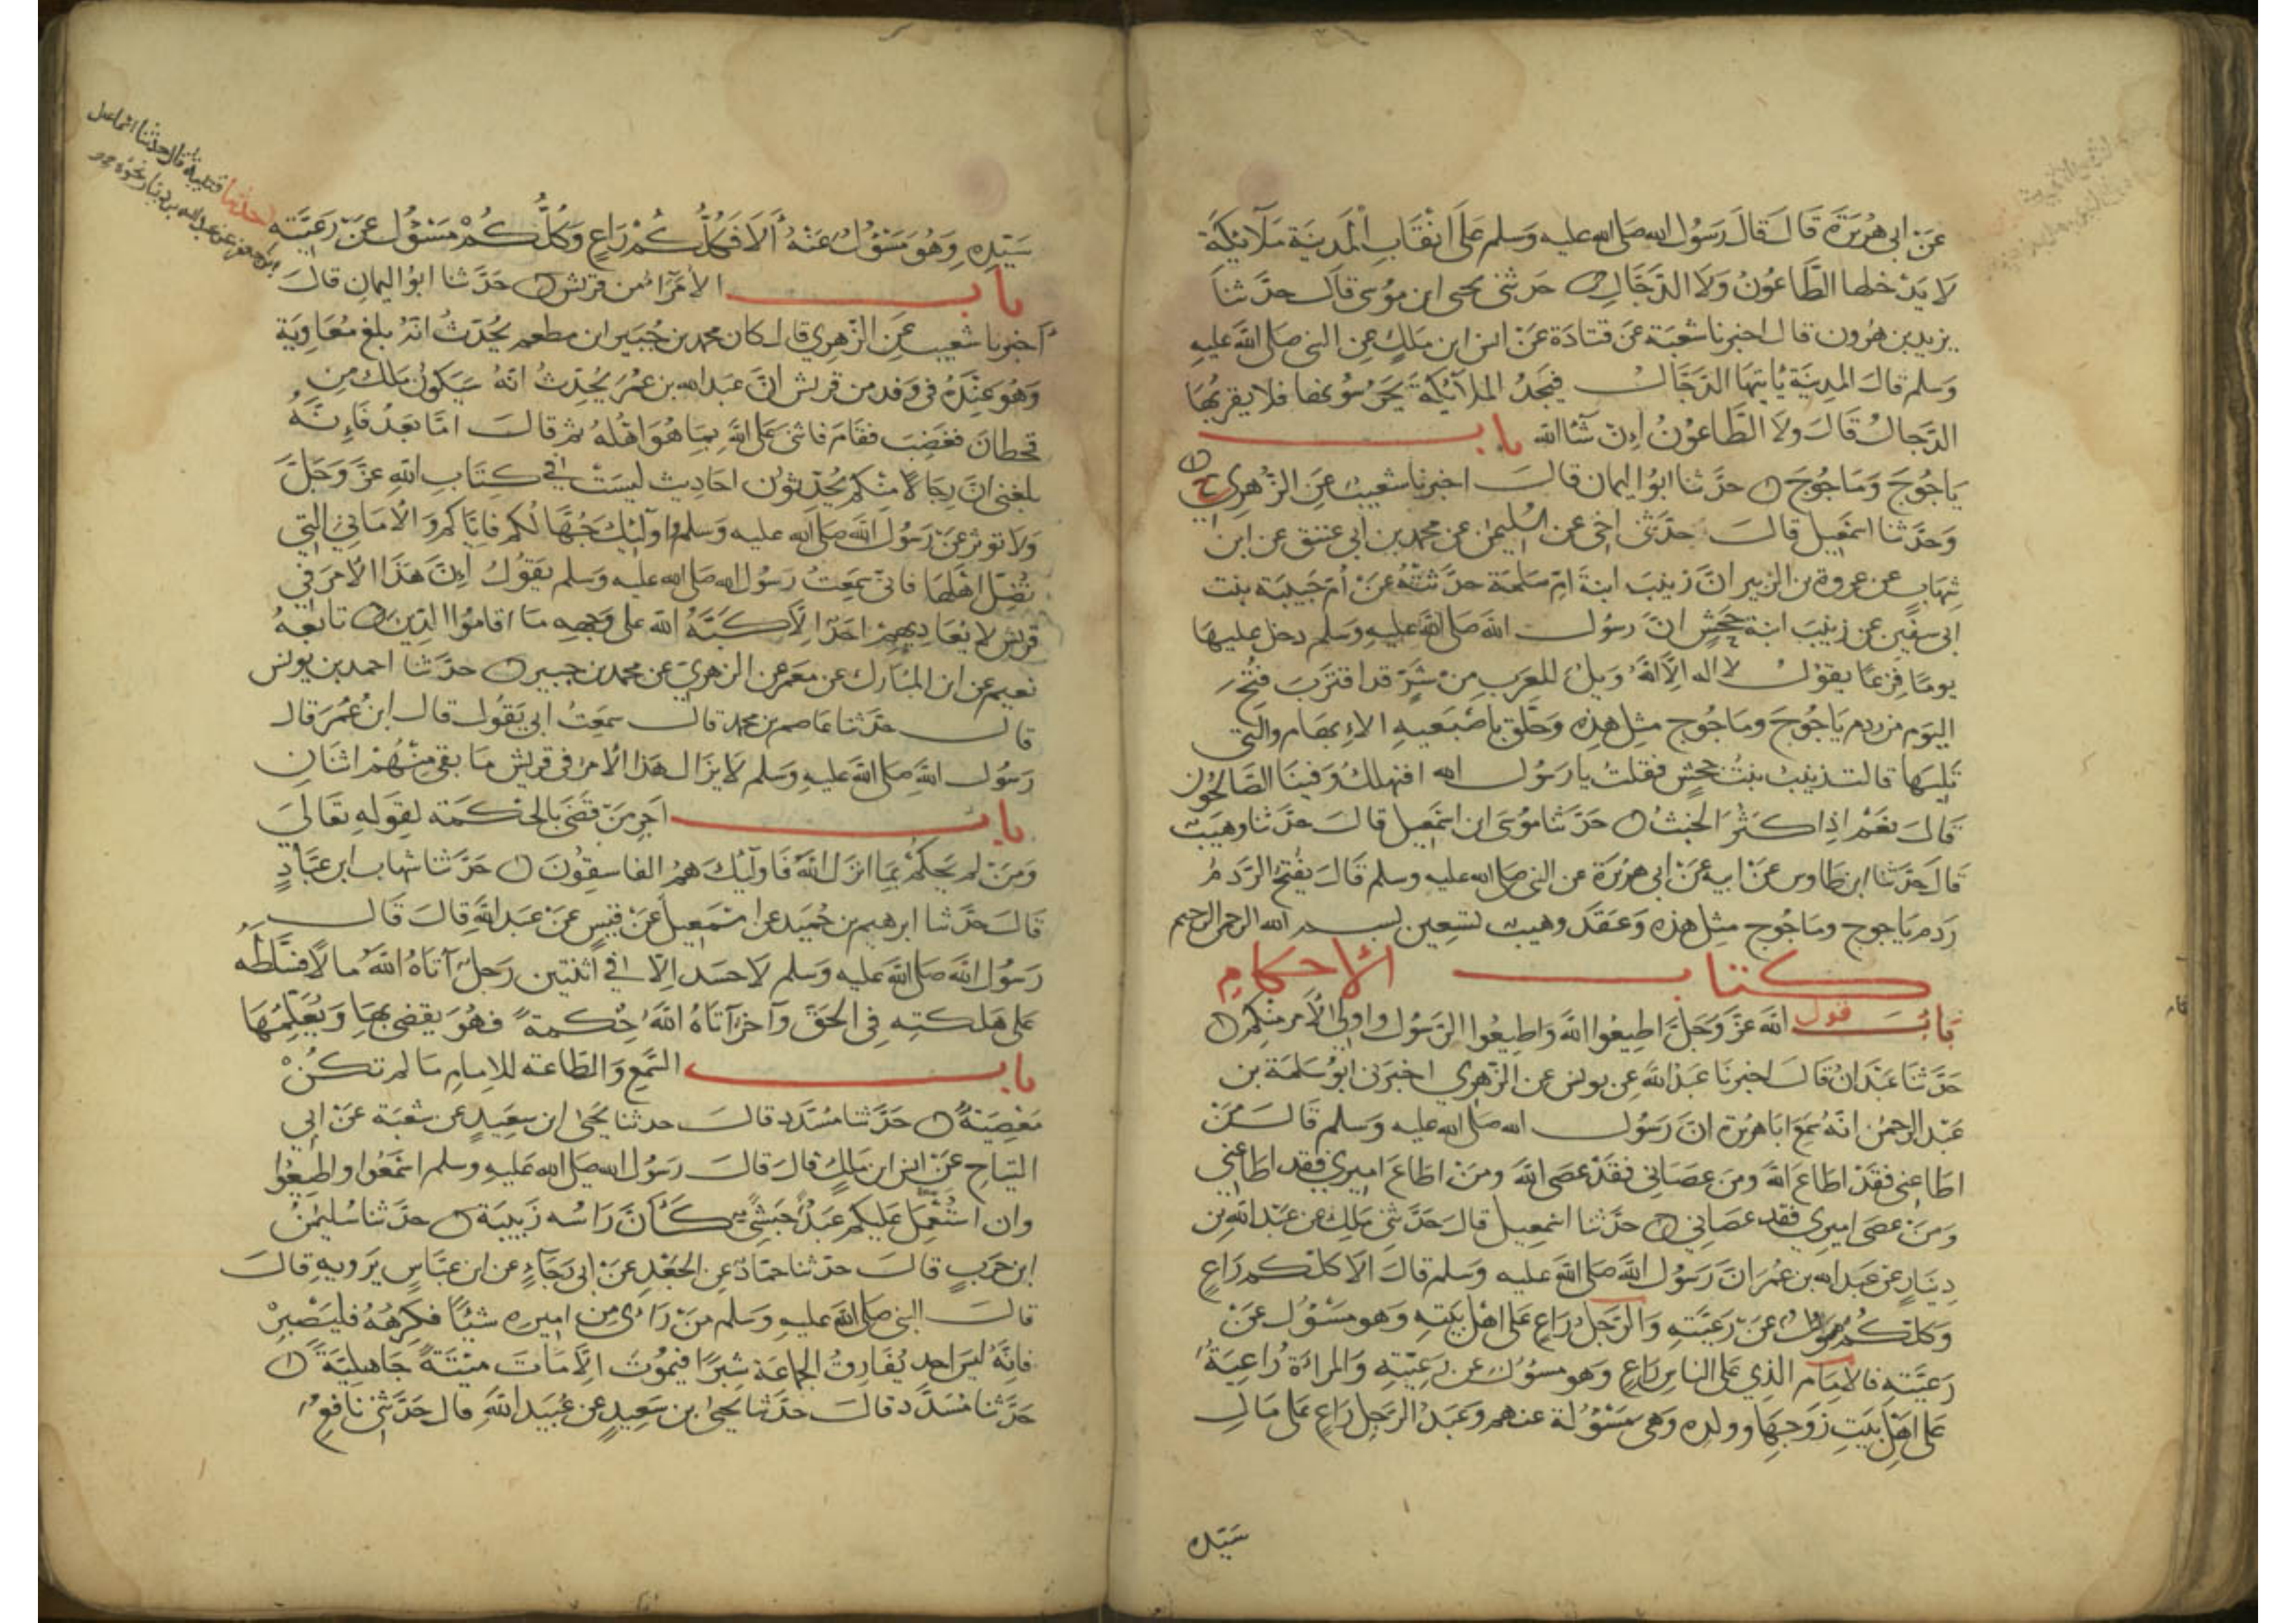 عن ابي هريرة قال قال رسول الله صلى الله عليه وسلم على انقاب المدينة ملائكة
لا يدخلها الطاعون ولا الدجال حدثني يحيى ابن موسى قال حدثنا
يزيد بن هرون قال اخبرنا شعبة عن قتادة عن انس ابن ملك عن النبي صلى الله عليه
وسلم قال المدينة يأتيها الدجال فيجد الملائكة يحرسونها فلا يقربها
الدجال قال ولا الطاعون إن شاالله باب
ياجوج وماجوج حدثنا ابو اليمان قال اخبرنا شعيب عن الزهري ح
وحدثنا اسمعيل قال حدثني اخي عن سليمن عن محمد بن ابي عتيق عن ابن
شهاب عن عروة بن الزبير ان زينب ابنة ام سلمة حدثته عن أم حبيبة بنت
ابي سفين عن زينب ابنة جحش ان رسول الله صلى الله عليه وسلم دخل عليها
يوما فزعا يقول لا اله إلا الله ويل للعرب من شر قد اقترب فتح
اليوم من ردم ياجوج وماجوج مثل هذه وحلق باصبعيه الإبهام والتي
تليها قالت زينب بنت جحش فقلت يا رسول الله افنهلك وفينا الصالحون
قال نعم إذا كثر الخبث حدثنا موسى ابن اسمعيل قال حدثنا وهيب
قال حدثنا ابن طاوس عن ابيه عن ابي هريرة عن النبي صلى الله عليه وسلم قال يفتح الردم
ردم ياجوج وماجوج مثل هذه وعقد وهيب تسعين بسم الله الرحمن الرحيم
كتاب الأحكام
باب قول الله عز وجل اطيعوا الله واطيعوا الرسول واولي الأمر منكم
حدثنا عبدان قال اخبرنا عبد الله عن يونس عن الزهري اخبرني ابو سلمة بن
عبد الرحمن انه سمع ابا هريرة ان رسول الله صلى الله عليه وسلم قال من
اطاعني فقد اطاع الله ومن عصاني فقد عصى الله ومن اطاع اميري فقد اطاعني
ومن عصى اميري فقد عصاني حدثنا اسمعيل قال حدثني ملك عن عبد الله بن
دينار عن عبد الله بن عمر ان رسول الله صلى الله عليه وسلم قال الا كلكم راع
وكلكم مسؤل عن رعيته والرجل راع على اهل بيته وهو مسؤل عن
رعيته فالامام الذي على الناس راع وهو مسؤل عن رعيته والمراة راعية
على اهل بيت زوجها وولده وهي مسؤلة عنهم وعبد الرجل راع على مال
سيده
سيده وهو مسؤل عنه ألا فكلكم راع وكلكم مسؤل عن رعيته
حدثنا قتيبة قال حدثنا اسماعيل
ابن جعفر عن عبد الله بن دينار نحوه
باب الأمراء من قريش حدثنا ابو اليمان قال
أخبرنا شعيب عن الزهري قال كان محمد بن جبير ابن مطعم يحدث انه بلغ معاوية
وهو عنده في وفد من قريش ان عبد الله بن عمر يحدث انه سيكون ملك من
قحطان فغضب فقام فاثنى على الله بما هو اهله ثم قال اما بعد فإنه
بلغني ان رجالا منكم يحدثون احاديث ليست في كتاب الله عز وجل
ولا توثر عن رسول الله صلى الله عليه وسلم واوليك جهالكم فاياكم والاماني التي
تضل اهلها فاني سمعت رسول الله صلى الله عليه وسلم يقول إن هذا الأمر في
قريش لا يعاديهم احد إلا كبه الله على وجهه ما اقاموا الدين تابعه
نعيم عن ابن المبارك عن معمر عن الزهري عن محمد بن جبير حدثنا احمد بن يونس
قال حدثنا عاصم بن محمد قال سمعت ابي يقول قال ابن عمر قال
رسول الله صلى الله عليه وسلم لا يزال هذا الأمر في قريش ما بقي منهم اثنان
باب اجر من قضى بالحكمة لقوله تعالى
ومن لم يحكم بما انزل الله فاوليك هم الفاسقون حدثنا شهاب ابن عباد
قال حدثنا ابرهيم بن حميد عن اسمعيل عن قيس عن عبد الله قال قال
رسول الله صلى الله عليه وسلم لا حسد إلا في اثنتين رجل آتاه الله مالا فسلطه
على هلكته في الحق وآخر آتاه الله حكمة فهو يقضي بها ويعلمها
باب السمع والطاعة للإمام ما لم تكن
معصية حدثنا مسدد قال حدثنا يحيى ابن سعيد عن شعبة عن ابي
التياح عن انس ابن ملك قال قال رسول الله صلى الله عليه وسلم اسمعوا واطيعوا
وان استعمل عليكم عبد حبشي كأن راسه زبيبة حدثنا سليمن
ابن حرب قال حدثنا حماد عن الجعد عن ابي رجاء عن ابن عباس يرويه قال
قال النبي صلى الله عليه وسلم من رأى من اميره شيئا فكرهه فليصبر
فانه ليس احد يفارق الجماعة شبرا فيموت إلا مات ميتة جاهلية
حدثنا مسدد قال حدثنا يحيى بن سعيد عن عبيد الله قال حدثني نافع